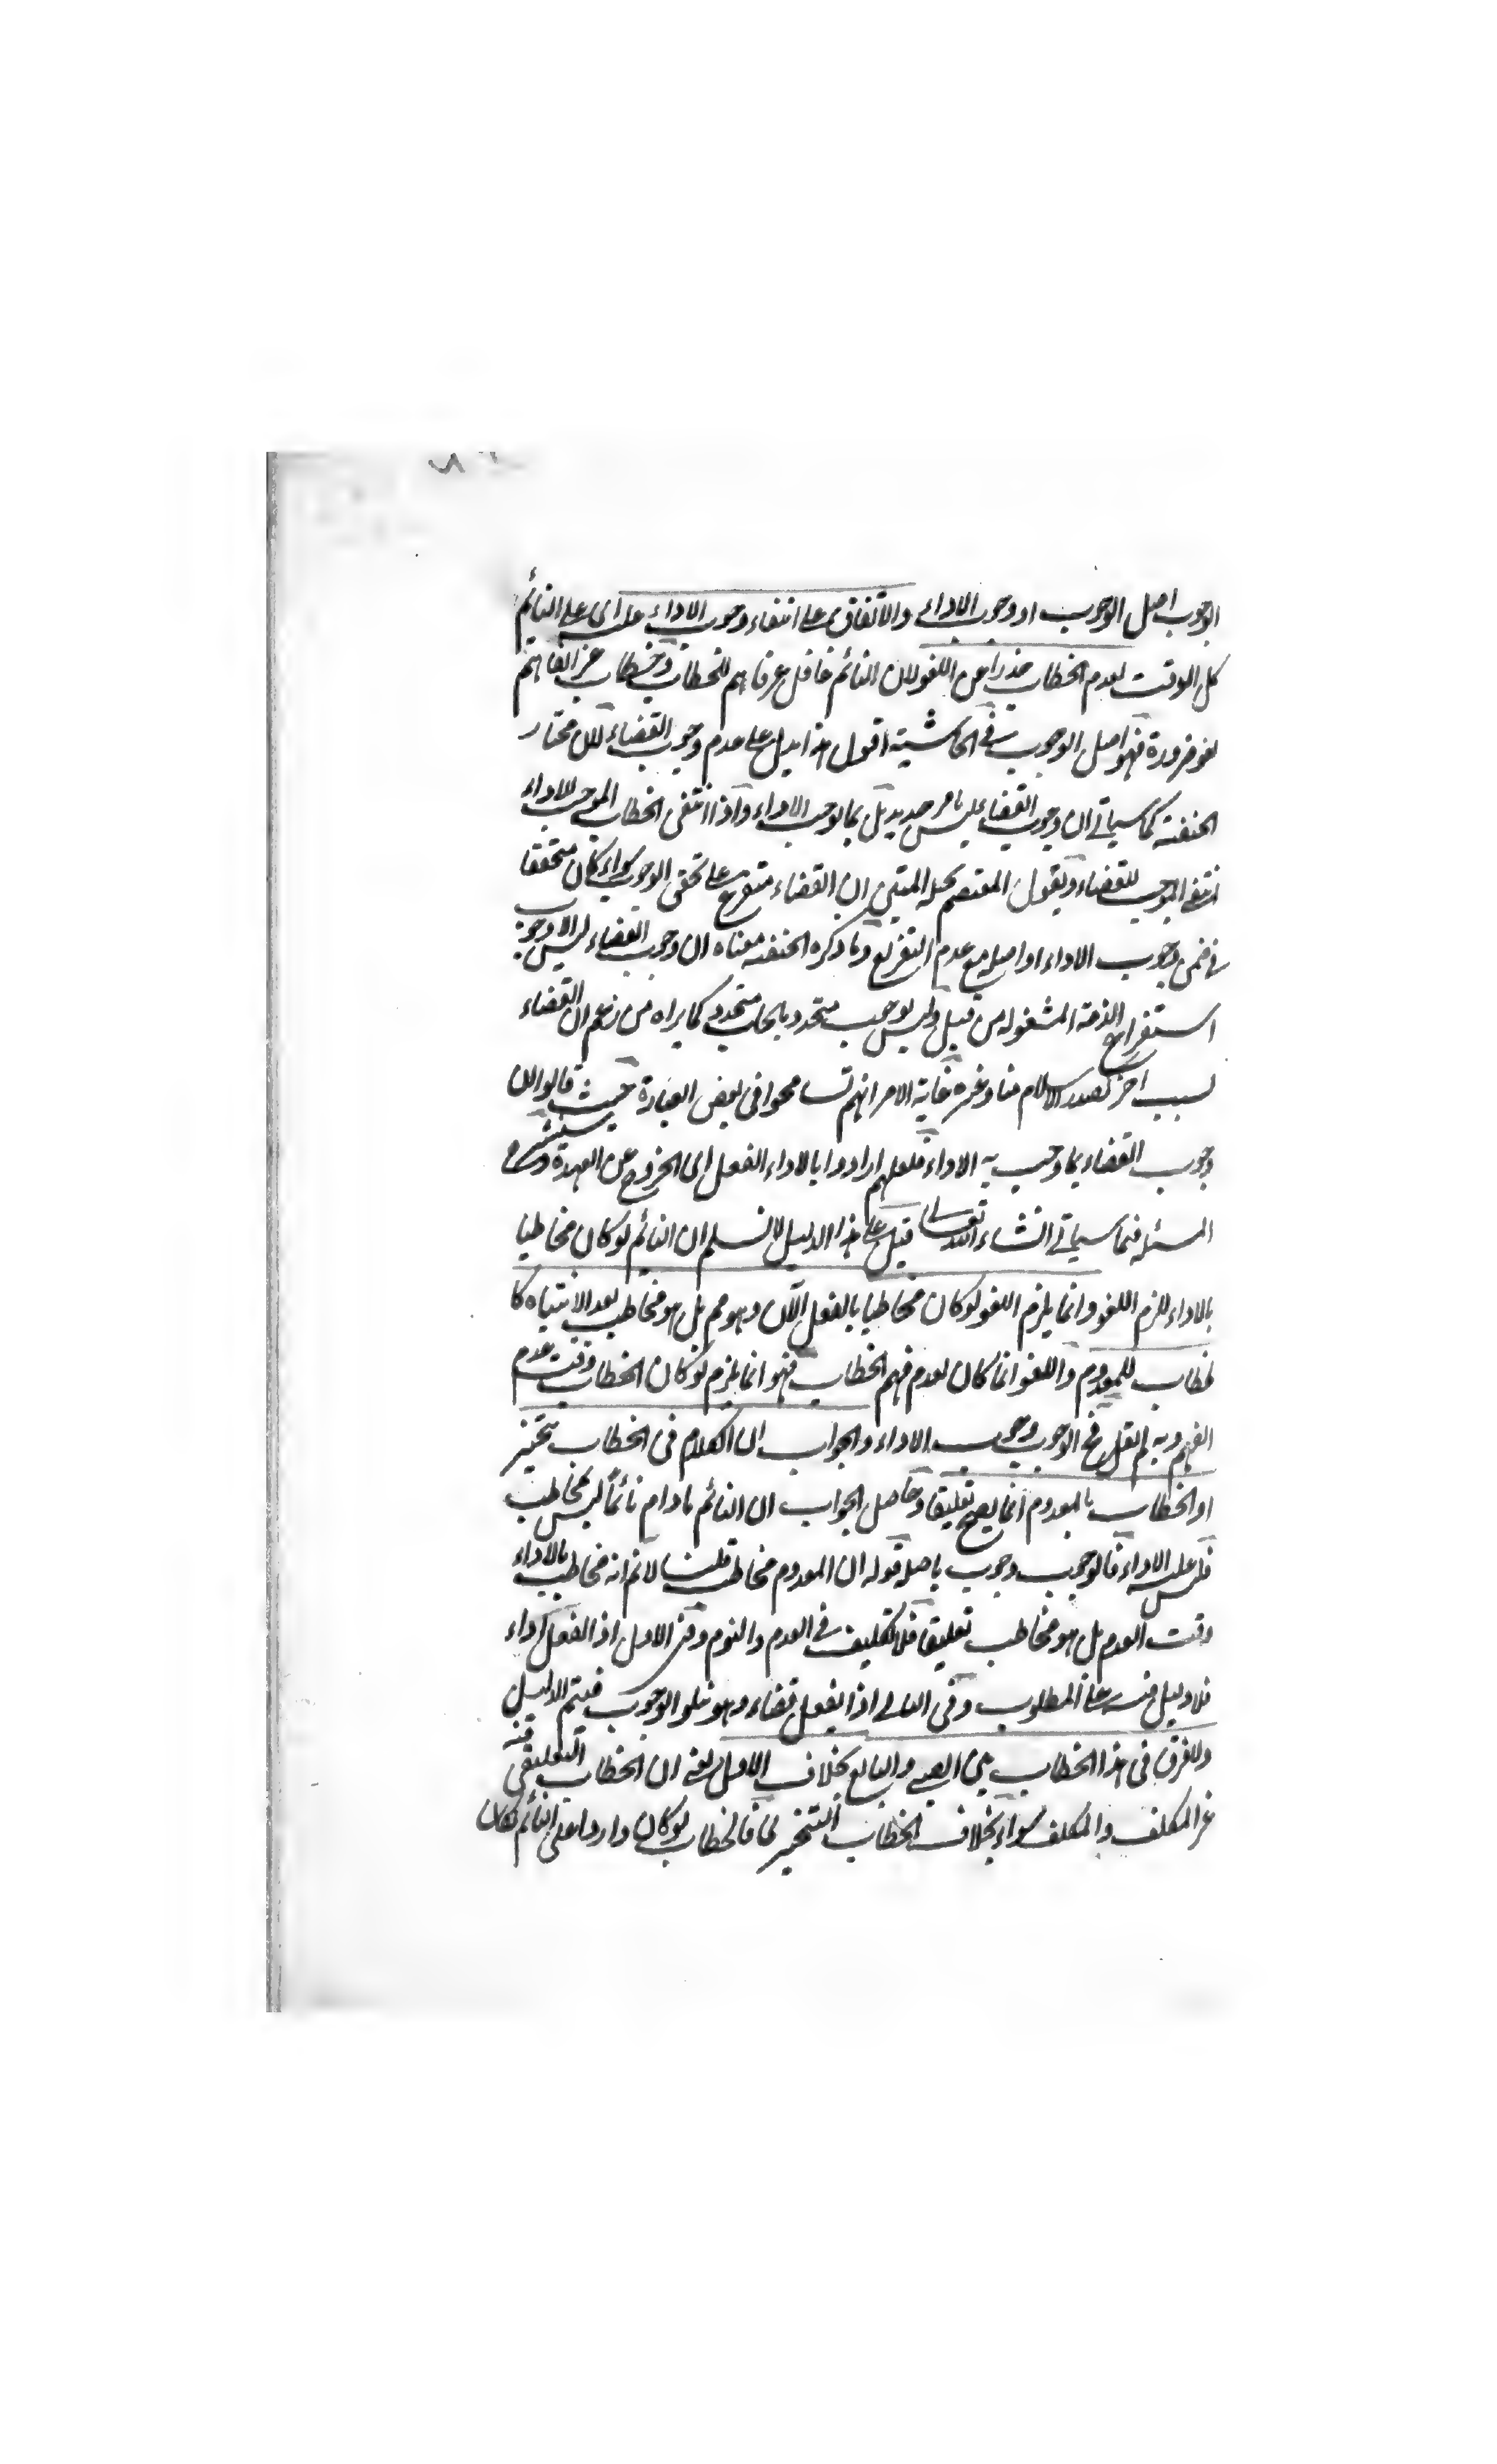 الوجوب اصل الوجوب او وجوب الاداء والاتفاق على انتفاء وجوب الاداء عليه اى على النائم
كل الوقت لعدم الخطاب حذرا عن اللغو لان النائم غافل غير فاهم للخطاب وخطاب غير الفاهم
لغو ضرورة فهو اصل الوجوب فى الحاشية اقول هذا يدل على عدم وجوب القضاء لان مختار
الحنفية كما سياتى ان وجوب القضاء ليس بامر جديد بل بما يوجب الاداء واذا انتفى الخطاب الموجب للاداء
انتفى الموجب للقضاء ويقول المعتصم بحبله المتين ان القضاء متفرع على تحقق الوجوب سواء كان متحققا
فى ضمن وجوب الاداء او اصله مع عدم التفريع وما ذكره الحنفية معناه ان وجوب القضاء ليس الا وجوب
استفراغ الذمة المشغولة من قبل وليس بوجوب متجدد بايجاب متجدد كما يراه من زعم ان القضاء
بسبب اخر كصدر الاسلام منا وغيره غاية الامر انهم تسامحوا فى بعض العبارة حيث قالوا ان
وجوب القضاء بما وجب به الاداء فلعلهم ارادوا بالاداء الفعل اى الخروج عن العهدة
المسئلة فيما سياتى انشاء الله تعالى قيل على هذا الدليل لا نسلم ان النائم لو كان مخاطبا
بالاداء للزم اللغو وانما يلزم اللغو لو كان مخاطبا بالفعل الآن وهو مم بل هو مخاطب بعد الانتباه كا
لخطاب للمعدوم واللغو انما كان لعدم فهم الخطاب فهو انما يلزم لو كان الخطاب وقت عدم
الفهم وبه لم يقل الوجوب وجوب الاداء والجواب ان الكلام فى الخطاب تنجيز
او الخطاب بالمعدوم انما يصح تعليقا وحاصل الجواب ان النائم مادام نائما ليس بمخاطب
فليس عليه الاداء فالوجوب وجوب باصله قوله ان المعدوم مخاطب قلنا لا نم انه مخاطب بالاداء
وقت العدم بل هو مخاطب تعليقا فلا تكليف فى العدم والنوم وفى الاول اذ الفعل اداء
فلا دليل فيه على المطلوب وفى الثانى اذا يفعل قضاء وهو يتلو الوجوب فيتم الدليل
ولا فرق فى هذا الخطاب بين الصبى والبالغ بخلاف الاول يعنى ان الخطاب التعليقى فيه
غير المكلف والمكلف سواء بخلاف الخطاب التنجيزى فالخطاب لو كان واردا على النائم لكان